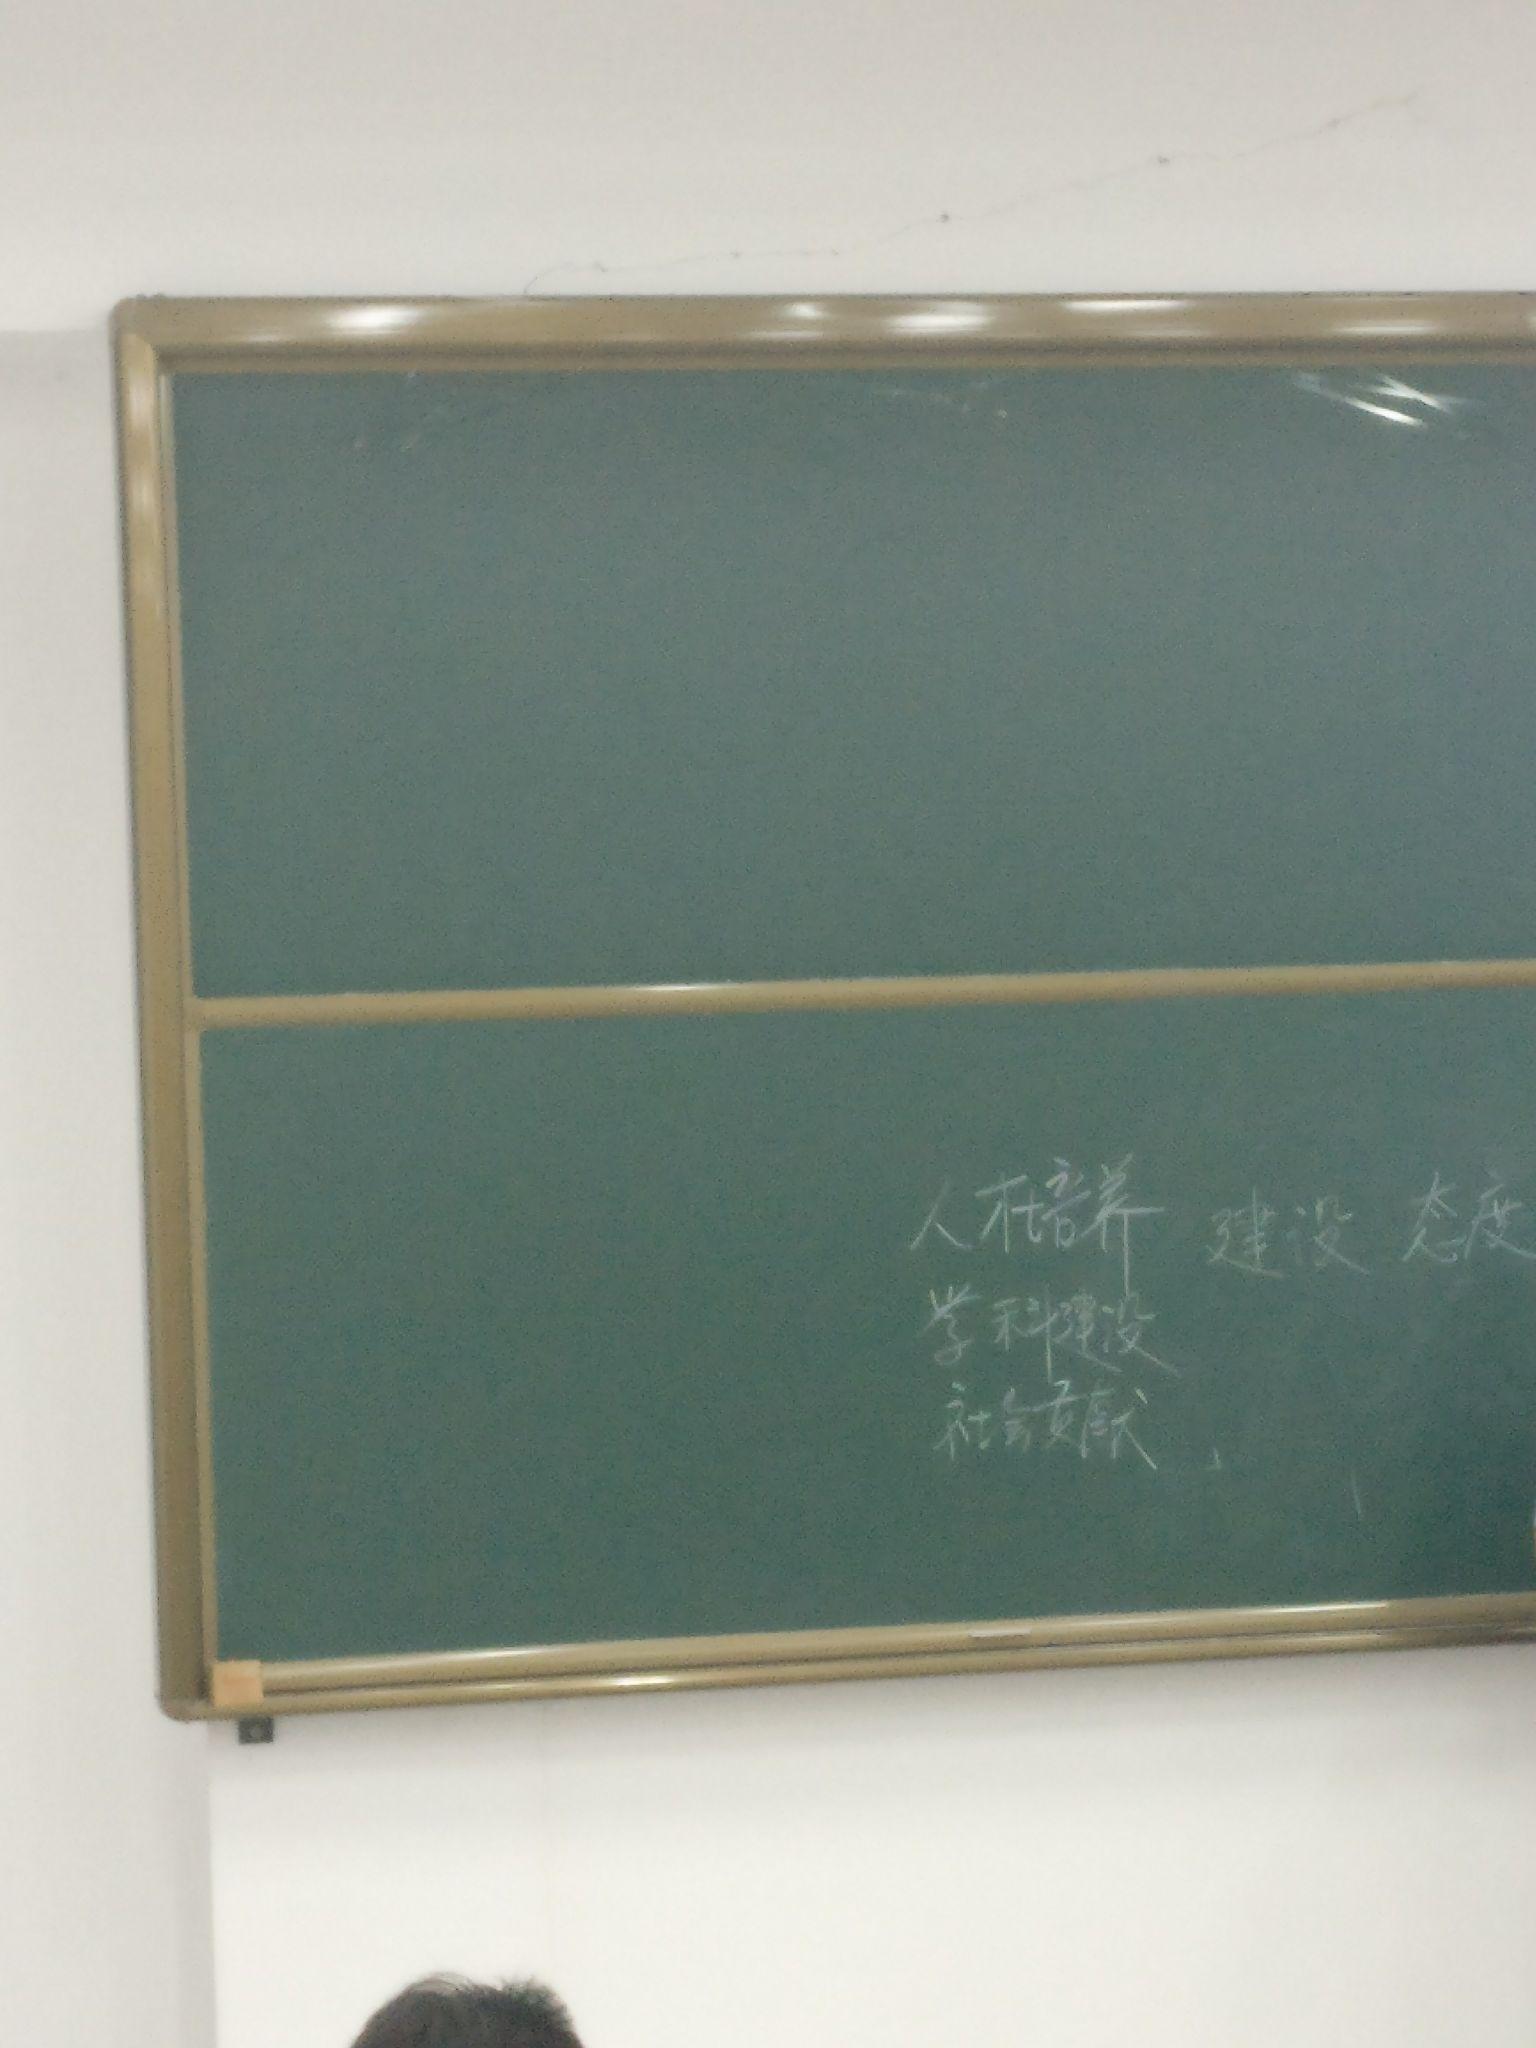 人才培养 建设 态度
学科建设
社会贡献